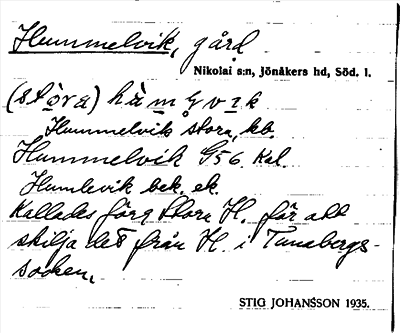 Hummelvik, gård
Nikolai s:n, Jönåkers hd, Söd. l.
(stòra) hàmǝlvɪk
Hummelvik stora, kb.
Hummelvik G56. Kal.
Humlevik bek. ek.
Kallades förr Stora H. för att
skilja det från H. i Tunabergs-
socken.
STIG JOHANSSON 1935.